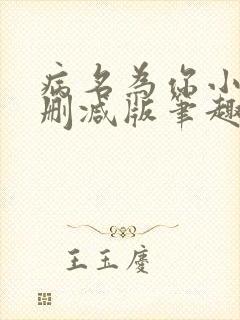 病名为你小
删减版笔趣
王玉庆